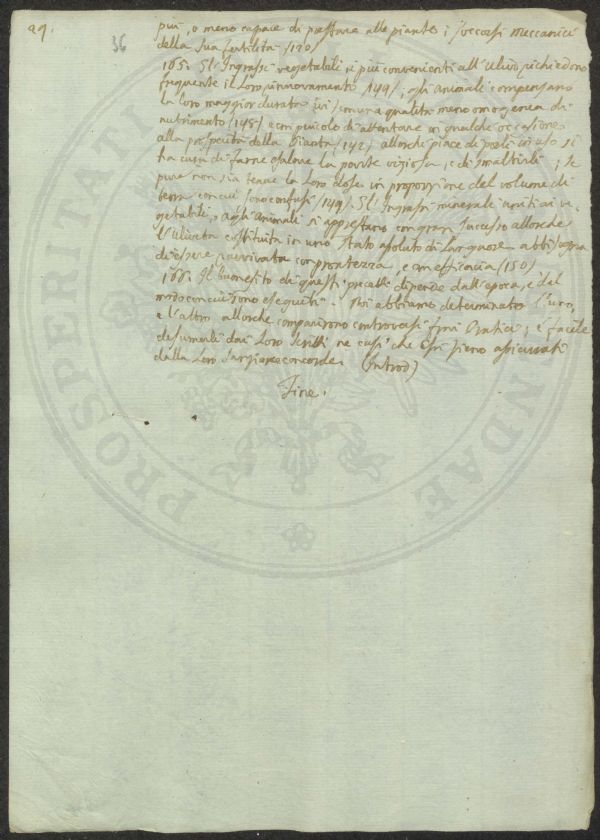 29.
36
più, o meno capace di prestare alle piante i soccorsi meccanici
della sua fertilità (120)
165. Gl'Ingrassi vegetabili, i più convenienti all'Ulivo richiedono
frequente il loro rinnovamento 149), gli animali compensano
la loro maggior durata ivi) con una qualità meno omogenea di
nutrimento (145) e con pericolo di attentare in qualche occasione
alla prosperità della Pianta (142) allorchè piace di porli in uso si
ha cura di farne esalare la parte viziosa, e di smaltirli; se
pure non sia tenue la loro dose in proporzione del volume di
terra con cui sono confusi (149) Gl'Ingrassi minerali uniti ai ve-
getabili, o agli animali si apprestano con gran successo allorchè
l'Uliveta costituita in uno stato assoluto di languore abbisogna
di essere ravvivata con prontezza, e con efficacia (150)
166. Il buon esito di questi precetti dipende dall'epoca, e del
modo con cui sono eseguiti. Noi abbiamo determinato l'uno,
e l'altro allorchè comparirono controversi fra i Pratici; è facile
desumerli dai loro scritti ne casi che essi sieno assicurati
dalla loro concorde. (Introd)
Fine.
PROSPERITATI
ANDAE